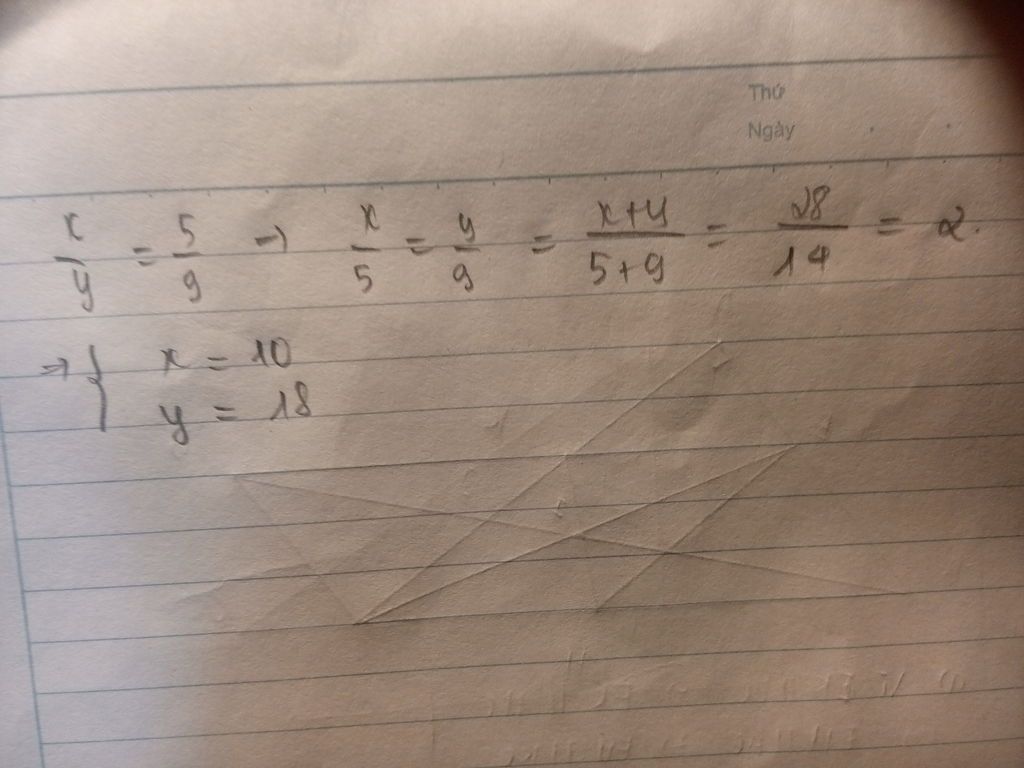 Thứ
Ngày
x/y = 5/9 → x/5 = y/9 = x+y/5+9 = 28/14 = 2.
⇒ { x = 10
y = 18